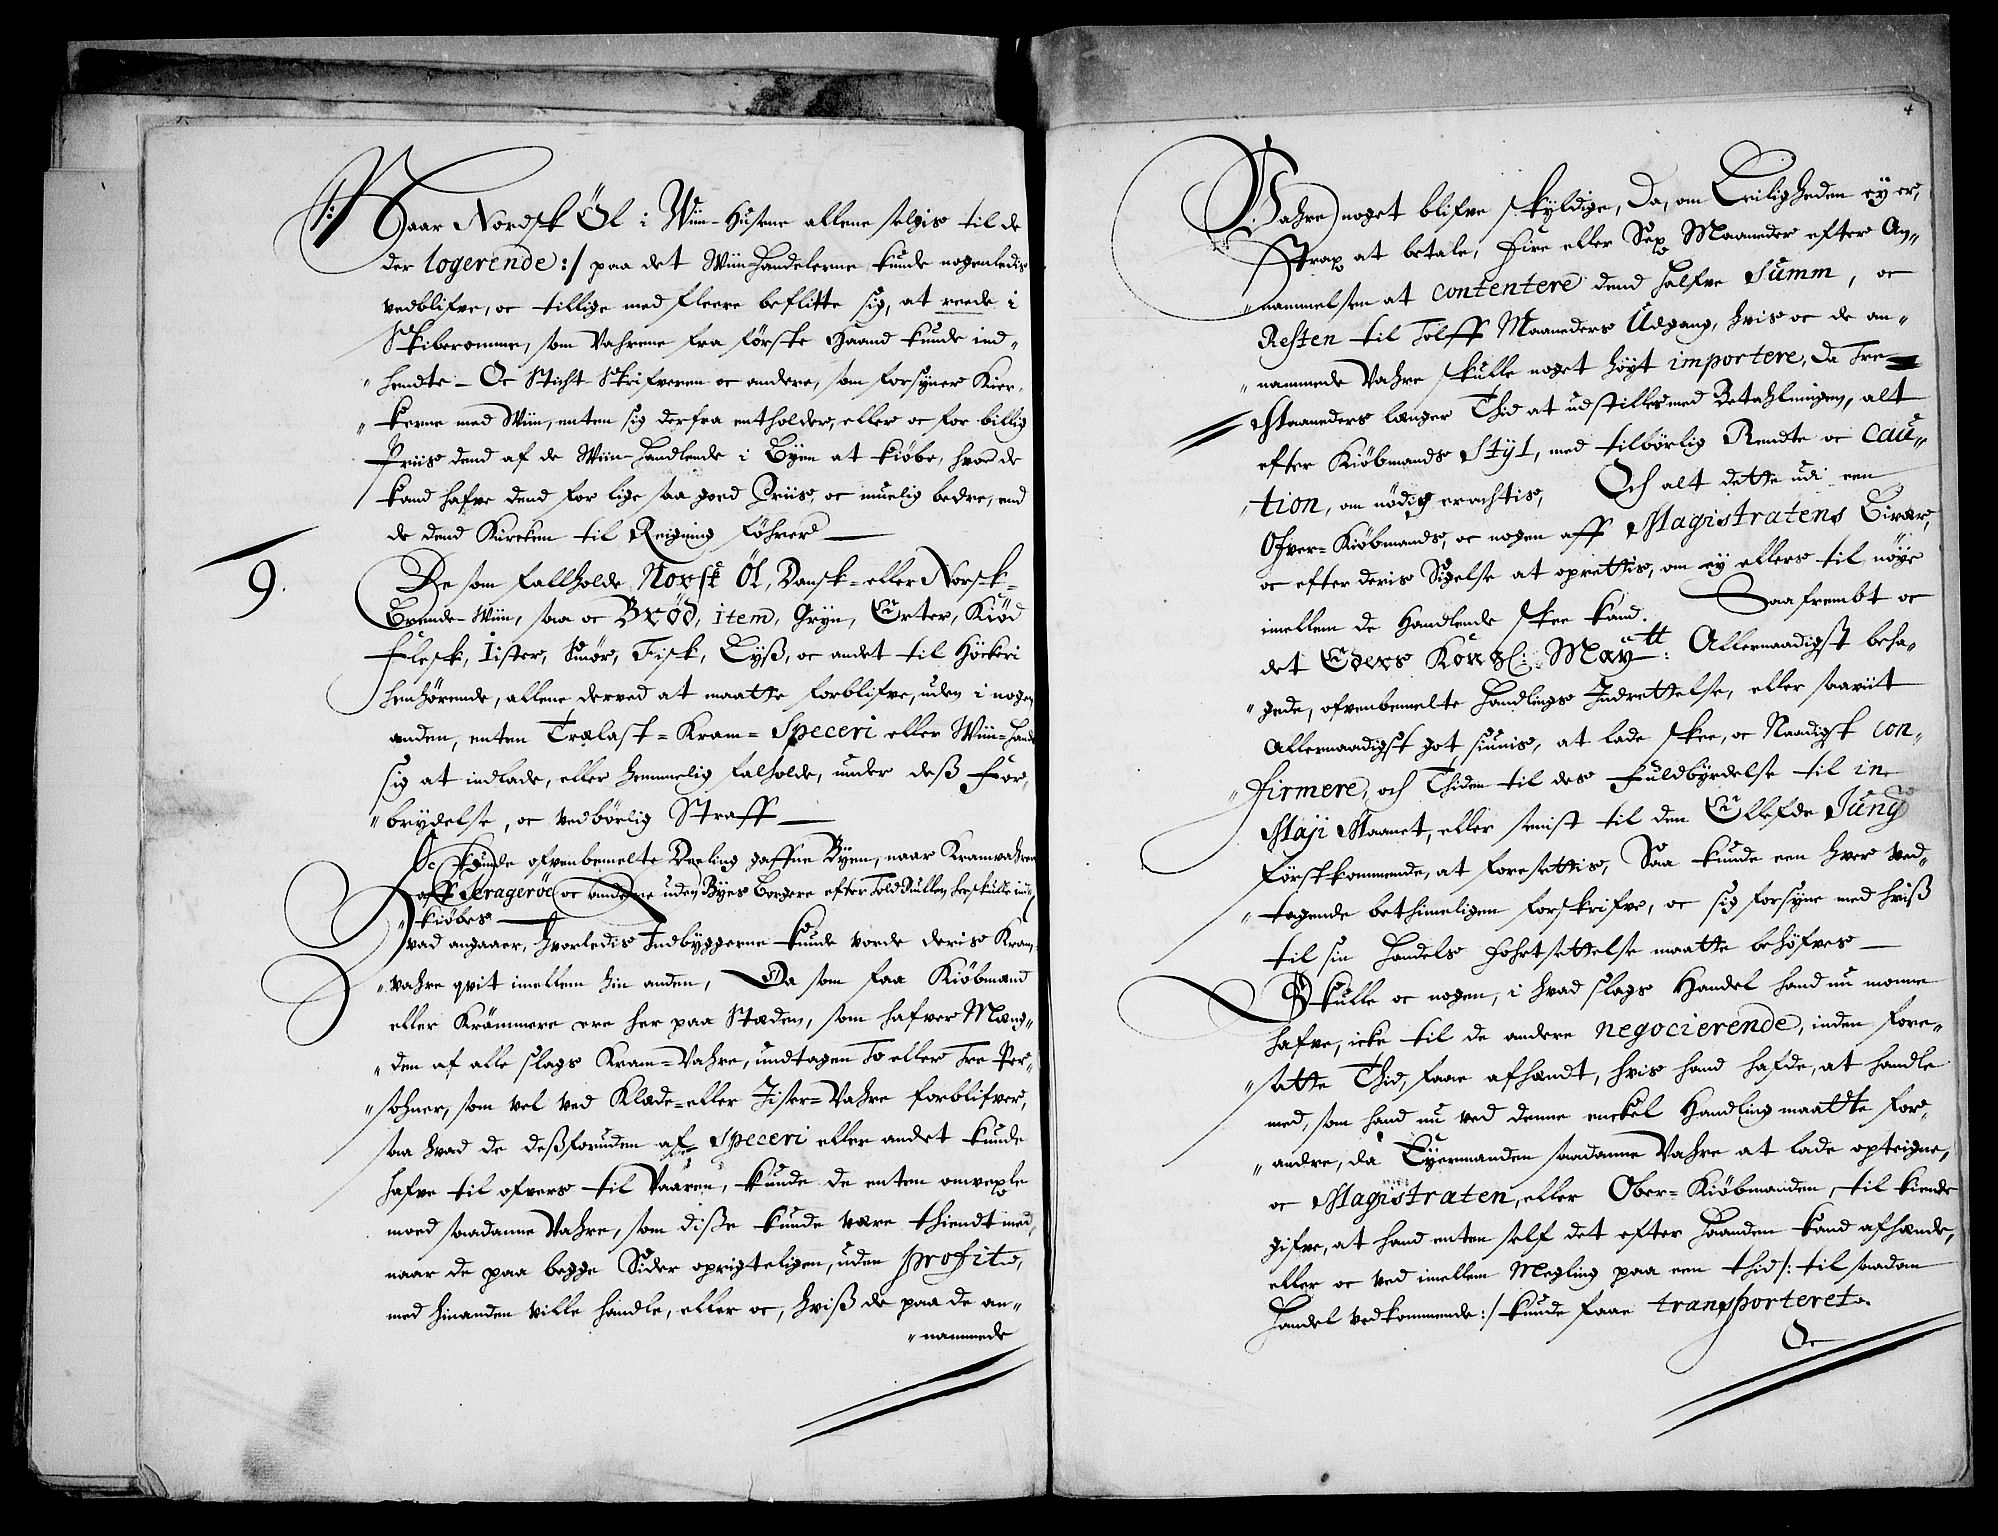 /: Naar Nordsk Öl i Wiin-Husene allene selgis til de
der logerende :/ paa det Wiin Handelerne kunde nogenledis
vedblifve, oc tillige med fleere beflitte sig, at reede i
Skiberomme, som Vahrene fra förske Haand kunde ind-
"hendte - Oc Sticht Skrifveren oc andere, som forsyner Kier-
"kerne med Wiin, enten sig derfra entholder, eller oc for billig
Priis dend af de Wiin-Handlende i Byen at kiöbe, hvor de
kand hafve dend for lige saa goed Priis, oc muelig bedre, end
de dend Kircken til Reigning föhrer —
9.
De som fallholde Norsk Öl, Dansk- eller Norsk-
Brende-Wiin, saa oc Bröd, item, Gryn, Erter, Kiöd
Flesk, Iister, Smör, Fisk, Lyß, oc andet til Höckeri
henhörende, allene derved at maatte forblifve, uden i nogen
anden, enten Trælast- Kram- Speceri eller Wiin-Handel
sig at indlade, eller hemmelig falholde, under deß For-
"brydelse, oc vedbörlig Straff —
Oc kunde ofvenbemelte Deeling gaffne Byen, naar Kramvahrene
aff Krageröe oc anderne uden Byes Borgere efter Told Rullen her skulle ind-
"kiöbes —
Hvad angaaer, hvorledis Indbyggerne kunde vorde deris Kram-
"vahre qvit imellem hin anden, Da som faa Kiöbmænd
eller Krämmere ere her paa Stæden, som hafver Mæng-
"den af alle slags Kram-Vahre, undtagen To eller Tre Per-
"sohner, som vel ved Klæde- eller Iisen-Vahre forblifver,
saa hvad de deßforuden af Speceri eller andet kunde
hafve til ofvers til Vaaren, kunde de enten omvexle
moed saadanne Vahre, som diße kunde være thiendt med,
naar de paa begge Sider oprigteligen, uden profit,
med hinanden ville handle, eller oc, hviß de paa de an-
"nammede
4
Vahre noget blifve skyldige, da, om Leiligheden ey er,
Strax at betale, fire eller Sex Maaneder efter An-
"nammelsen at contentere dend halfve Summ, oc
Resten til Tolff Maaneders Udgang, hvis oc de an-
"nammede Vahre skulle noget höyt importere, da Tre
Maaneders længer Thid at udstilles med Betahlningen, alt
efter Kiöbmands Styl, med tilbörlig Rendte oc cau-
"tion, om nödig erachtis, Och alt dette udi een
Ofver-Kiöbmands, oc nogen aff Magistratens Bivær,
oc efter deris Sigelse at oprettis, om ey ellers til nöye
imellem de Handlende skee kand. Saafrembt oc
det Eders Kongl: Maytt: Allernaadigst beha-
"gede, ofvenbemelte Handlings Indrettelse, eller saaviit
Allernaadigst got siunis, at lade skee, oc Naadigst con-
"firmere, och Thiden til des Fuldbyrdelse til in
Maji Maanet, eller senist til den Ellefde Junij
förstkommende, at foresettis, Saa kunde een hver ved-
"tagende bethimeligen forskrifve, oc sig forsyne med hviß
til sin Handels Fohrtsettelse maatte behöfves —
Skulle oc nogen, i hvad slags Handel hand nu monne
hafve, icke til de andere negocierende, inden fore-
"satte Thid, faae afhændt, hvis hand hafde, at handle
med, som hand nu ved denne enckel Handling maatte for-
"andre, da Eyermanden saadanne Vahre at lade opteigne,
oc Magistraten, eller Ober-Kiöbmanden, til kiende
gifve, at hand enten self det efter Haanden kand afhænde,
eller oc ved imellem Megling paa een thid /: til saadan
Handel vedkommende :/ kunde faae transporteret.
Oc